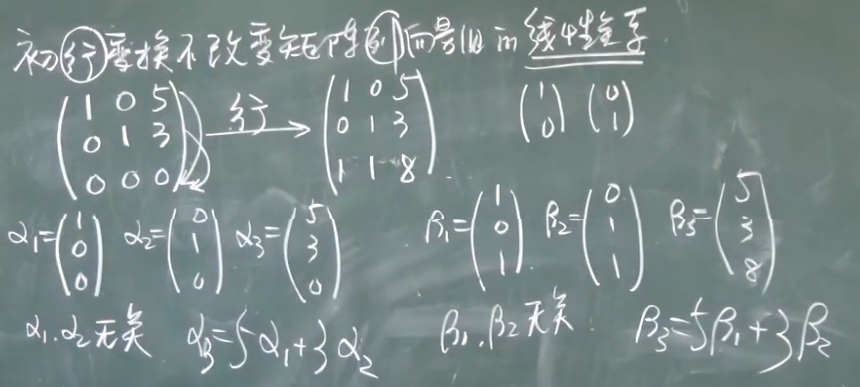 初行变换不改变矩阵列向量组的线性关系
(1 0 5; 0 1 3; 0 0 0) 行→ (1 0 5; 0 1 3; 1 1 8) (1; 0) (0; 1)
α₁=(1; 0; 0) α₂=(0; 1; 0) α₃=(5; 3; 0) β₁=(1; 0; 1) β₂=(0; 1; 1) β₃=(5; 3; 8)
α₁、α₂无关 α₃=5α₁+3α₂ β₁、β₂无关 β₃=5β₁+3β₂